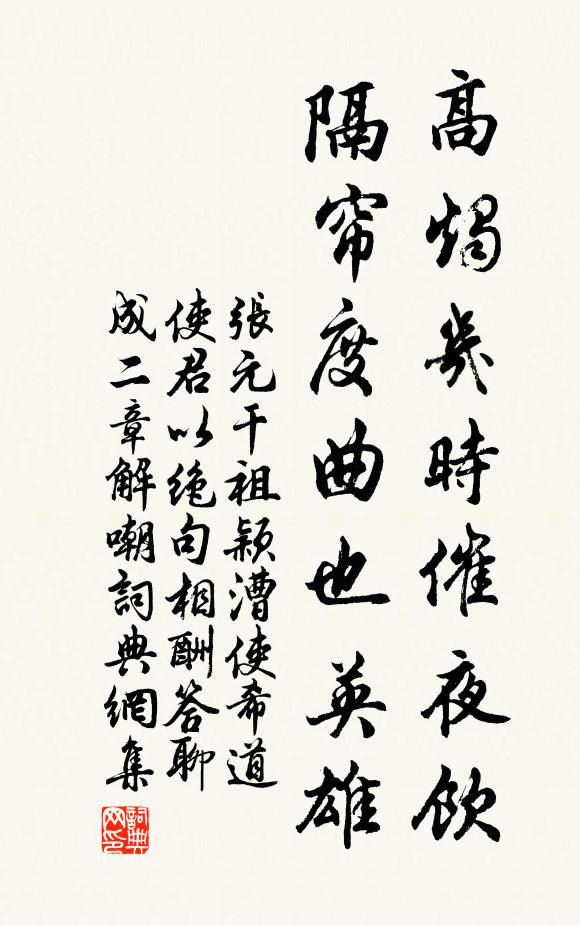 高烛幾時催夜飲
隔帘度曲也英雄
張元干祖颖漕使希道
使君以绝句相酬答聊
成二章解嘲詞典網集
詞典网印